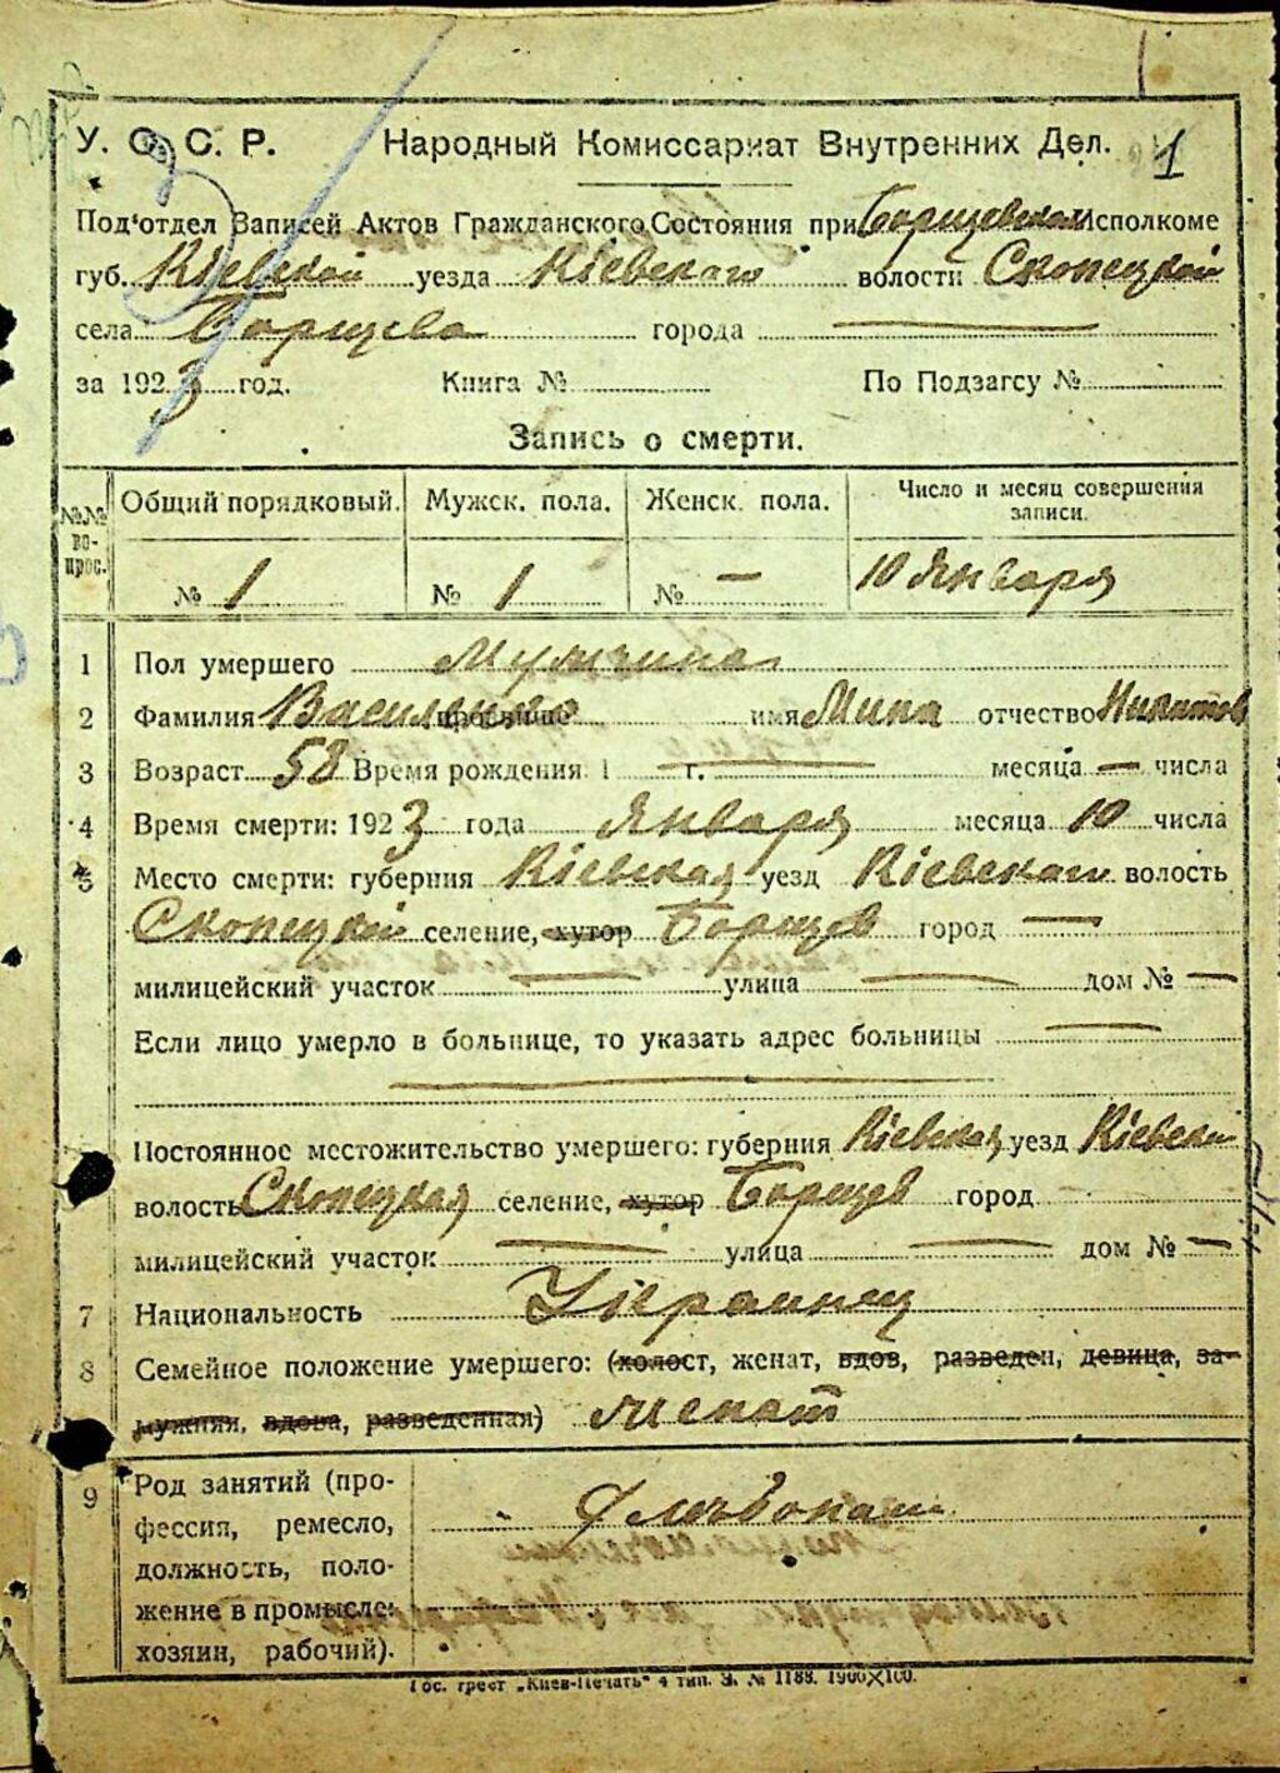 1
У. С. С. Р. Народный Комиссариат Внутренних Дел.
Под'отдел Записей Актов Гражданского Состояния при Борщевском Исполкоме
губ. Кіевской уезда Кіевскаго волости Скопецкой
села Борщева города —
за 1923 год. Книга № По Подзагсу №
Запись о смерти.
№№ во- прос. Общий порядковый. Мужск. пола. Женск. пола. Число и месяц совершения записи.
№ 1 № 1 № — 10 Января
1 Пол умершего Мущина
2 Фамилия Василенко прозвище имя Мина отчество Никитов
3 Возраст 58 Время рождения 1 — г. месяца — числа
4 Время смерти: 1923 года Января месяца 10 числа
5 Место смерти: губерния Кіевская уезд Кіевскаго волость
Скопецкой селение, хутор Борщев город —
милицейский участок — улица — дом № —
Если лицо умерло в больнице, то указать адрес больницы —
Постоянное местожительство умершего: губерния Кіевская уезд Кіевска
волость Скопецкая селение, хутор Борщев город —
милицейский участок — улица — дом № —
7 Национальность Украинец
8 Семейное положение умершего: (холост, женат, вдов, разведен, девица, за-
мужняя, вдова, разведенная) женат
9 Род занятий (про-
фессия, ремесло,
должность, поло-
жение в промысле:
хозяин, рабочий).
Гос. трест „Киев-Печать" 4 тип. З. № 1188. 1900×100.